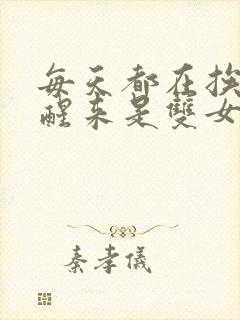 每天都在挨
醒来是雙女
秦孝儀